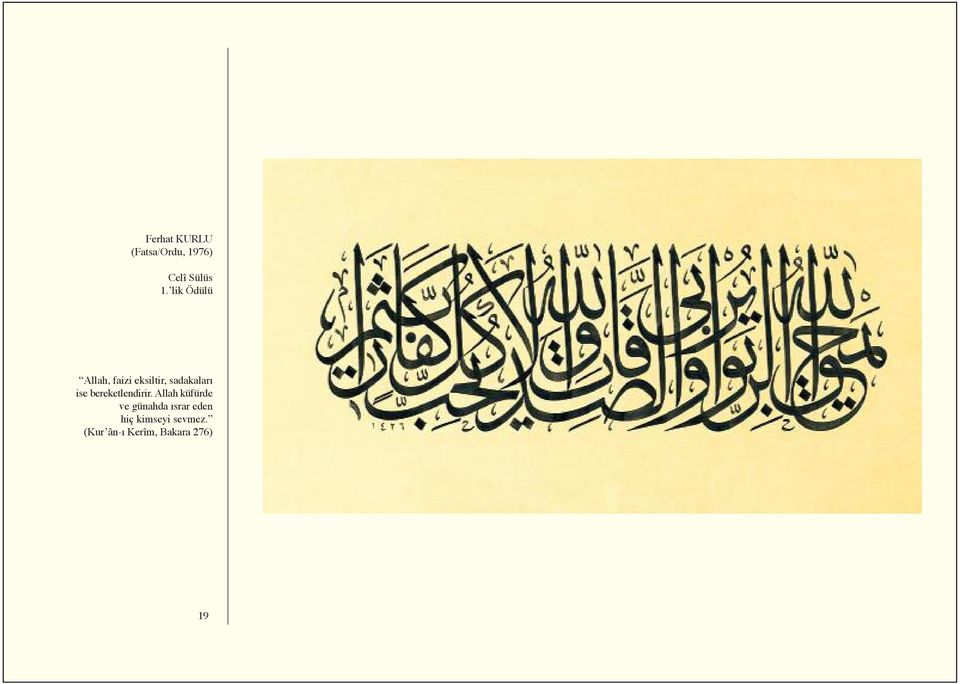 Ferhat KURLU
(Fatsa/Ordu, 1976)
Celî Sülüs
1.’lik Ödülü
“Allah, faizi eksiltir, sadakaları
ise bereketlendirir. Allah küfürde
ve günahda ısrar eden
hiç kimseyi sevmez.”
(Kur’ân-ı Kerîm, Bakara 276)
19
يمحق الله الربوا ويربي الصدقات والله لا يحب كل كفار اثيم
١٤٢٦